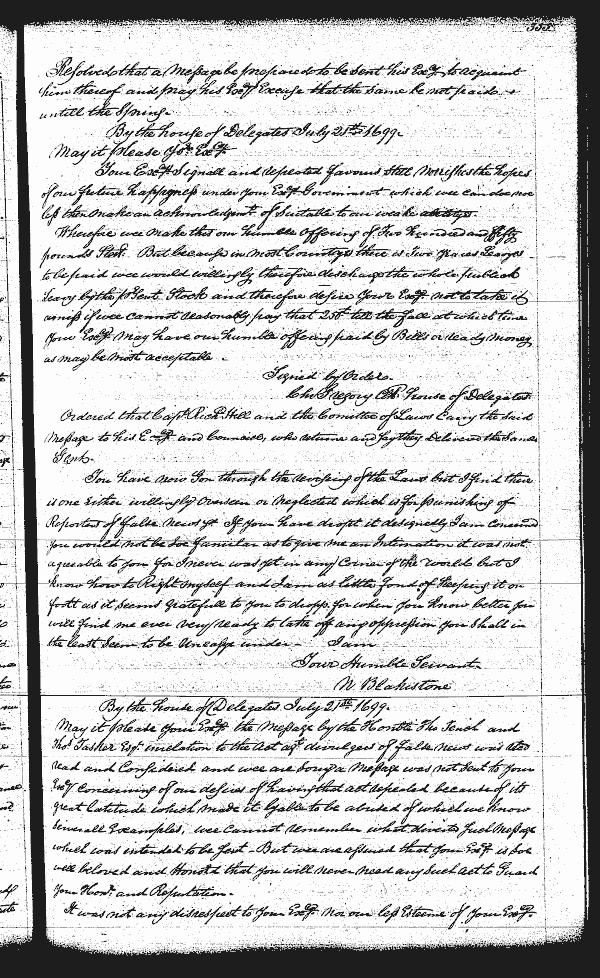 353
Resolved that a Message be prepared to be sent his Excy. to acquaint
him thereof and pray his Excy Excuse that the same be not paid
untill the Spring.
By the house of Delegates July 21st 1699.
May it please Yor. Excy
Your Excys Signall and repeated favours still Norishes the hopes
of our future happyness under your Excys Government which wee can doe no
less then make an acknowledgmt. of Suitable to our weake abilitys.
Wherefore wee make this our humble offering of Two hundred and fifty
pounds Sterl. But because in most Countys there is Two places Leavys
to be paid wee would willingly therefore discharge the whole publick
Leavy by the psent Stock and therefore desire your Excy not to take it
amiss if wee cannot reasonably pay that 250 till the fall at which time
your Excy may have our humble offering paid by Bills or ready Money
as may be most acceptable.
Signed by Order.
Chr Gregory Clk. house of Delegates
Ordered that Capt. Richd. Hill and the Comittee of Laws Carry the said
Message to his Excy and Councill, who returne and say they Delivered the same
Gent.
You have now Gon through the revising of the Laws but I find there
is one Either willingly Overseen or Neglected which is for punishing of
Reporters of False News yt If you have dropt it designedly I am concerned
you would not be soe familiar as to give me an Intimation it was not
agreable to you for I never was yet in any Corner of the world but I
know how to Right myself and I am as little fond of keeping it on
foott as it seems gratefull to you to dropp for when you know better you
will find me ever very ready to take off any oppression you shall in
the least Seem to be Uneasye under I am
Your Humble Servant
N Blakistone
By the house of Delegates July 21st 1699.
May it please your Excy. the Message by the Honble Tho Tench and
Thos. Tasker Esqr. in relation to the Act agt. divulgers of false news was also
read and Considered and wee are sorry a Message was not sent to your
Excy concerning of our desires of having that act repealed because of its
great latitude which made it lyable to be abused of which we know
severall Examples, wee cannot remember what diverted such Message
which was intended to be sent. But wee are assured that your Excy. is soe
well beloved and Honord that you will never need any such act to Guard
your Honr. and Reputation.
It was not any disrespect to your Excy. nor our less Esteeme of your Excy.